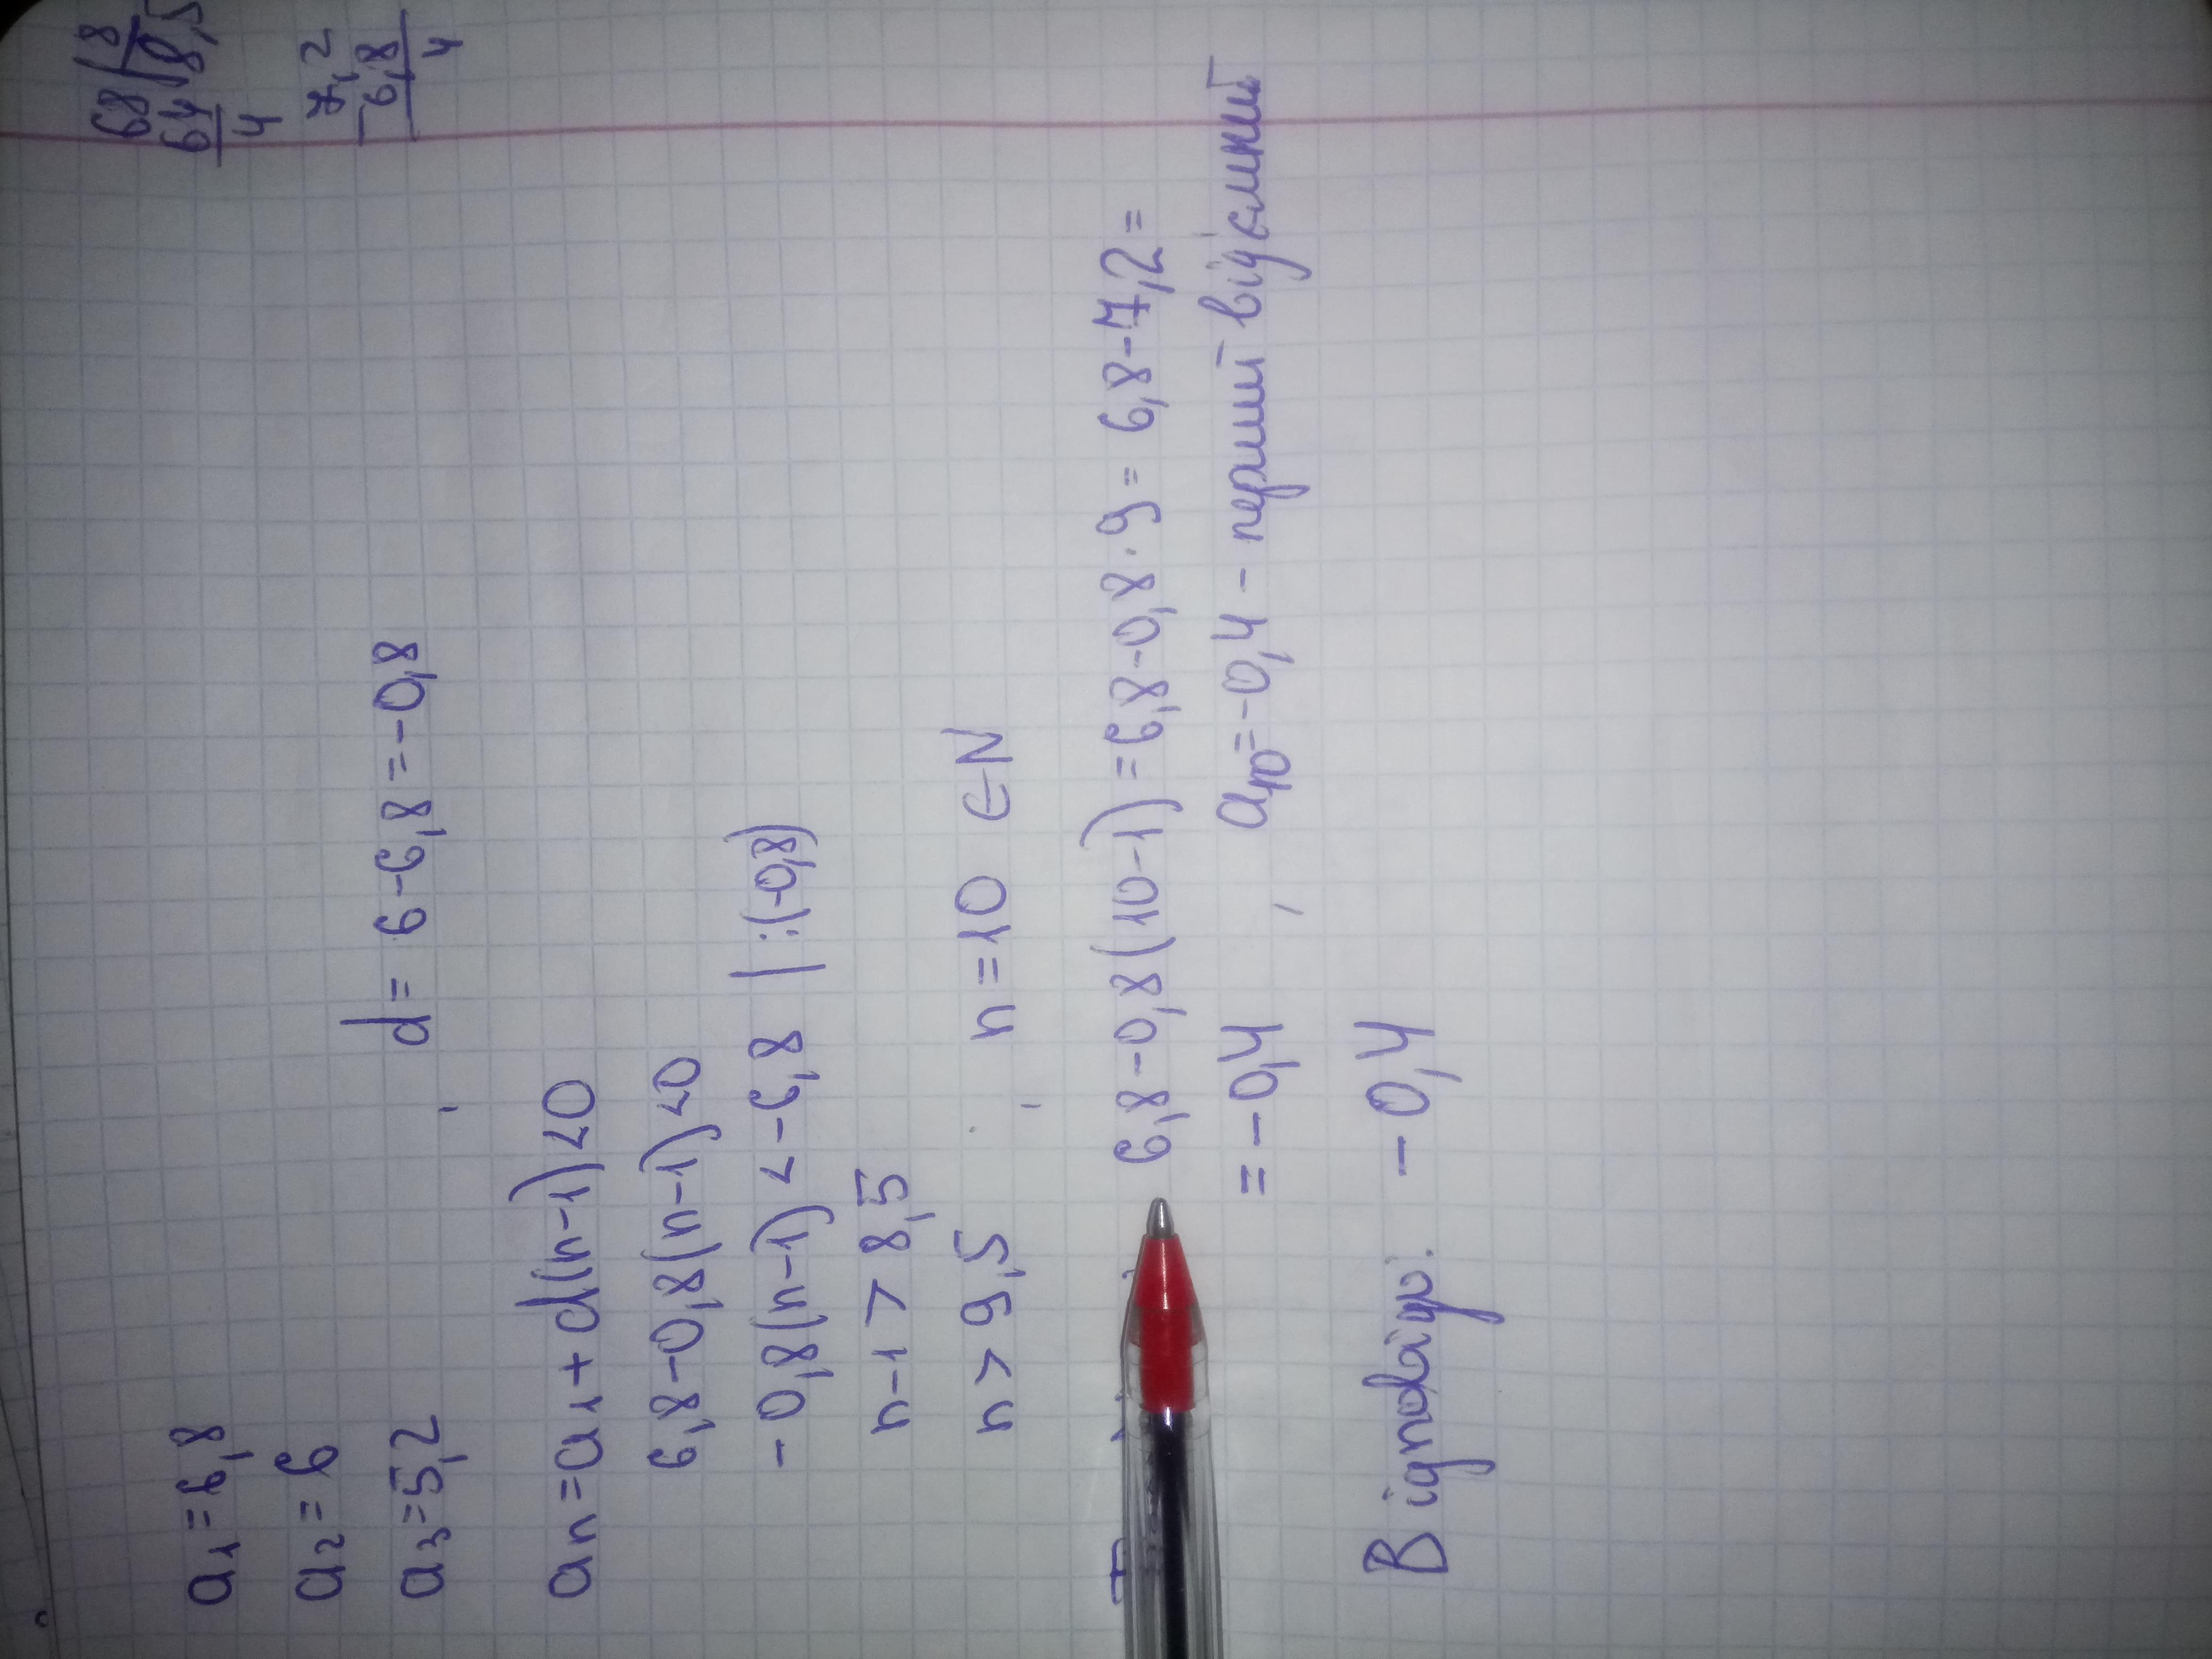 68 | 8
64 | 8,5
4
7,2
- 6,8
4
a₁ = 6,8
a₂ = 6
a₃ = 5,2
d = 6 - 6,8 = -0,8
an = a₁ + d(n-1) < 0
6,8 - 0,8(n-1) < 0
- 0,8(n-1) < -6,8 | :(-0,8)
n-1 > 8,5
n > 9,5 n = 10 ∈ N
6,8 - 0,8(10-1) = 6,8 - 0,8 · 9 = 6,8 - 7,2 =
= -0,4 a₁₀ = -0,4 - перший від'ємний
Відповідь: -0,4